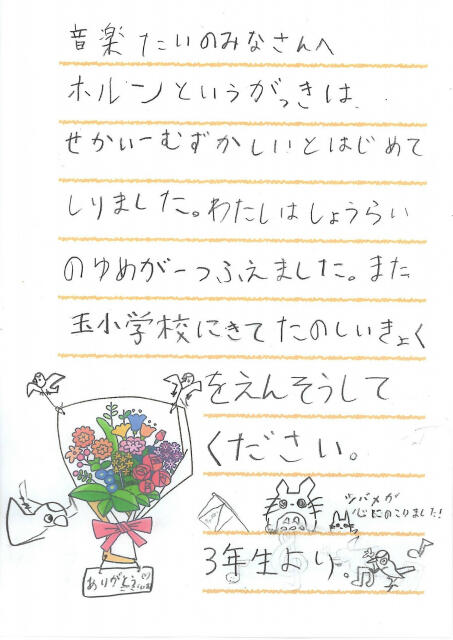 音楽たいのみなさんへ
ホルンというがっきは
せかい一むずかしいとはじめて
しりました。わたしはしょうらい
のゆめが一つふえました。また
玉小学校にきてたのしいきょく
をえんそうして
ください。
ツバメが
心にのこりました!
3年生より。
ありがとう